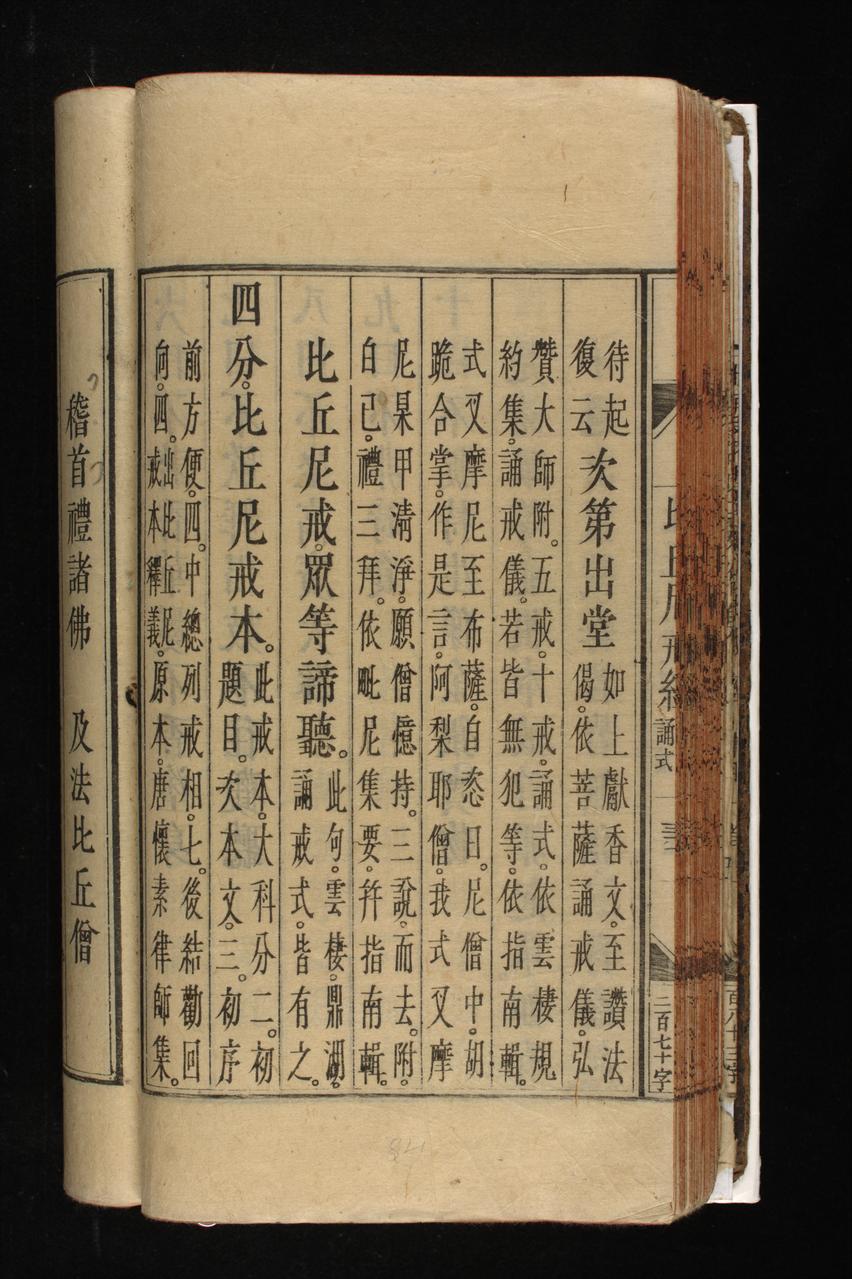 比丘尼戒經 誦式 二百七十字
待起
復云
次第出堂
如上獻香文。至讚法
偈。依菩薩誦戒儀。弘
贊大師附。五戒。十戒。誦式。依雲棲規
約集。誦戒儀。若皆無犯等。依指南輯。
式叉摩尼至布薩。自恣日。尼僧中。胡
跪合掌。作是言。阿梨耶僧。我式叉摩
尼某甲清淨。願僧憶持。三說。而去。附。
白已。禮三拜。依毗尼集要。幷指南輯。
比丘尼戒。眾等諦聽。
此句。雲棲。鼎湖。
誦戒式。皆有之。
四分。比丘尼戒本。
此戒本。大科分二。初
題目。次本文。三。初序
前方便。四。中總列戒相。七。後結勸回
向。四。
出比丘尼
戒本釋義。
原本。唐懷素律師集。
稽首禮諸佛 及法比丘僧